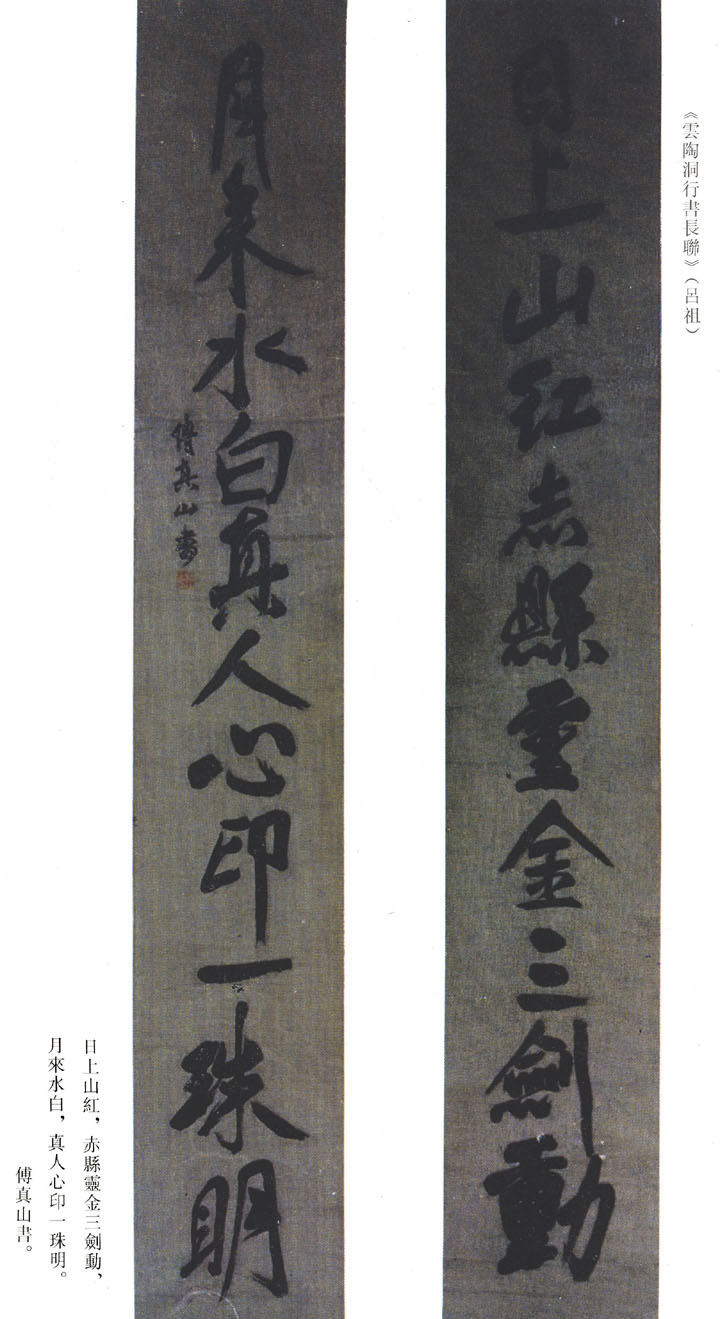 《雲陶洞行書長聯》（呂祖）
日上山紅赤縣靈金三劍動
月來水白真人心印一珠明
傅真山書
日上山紅，赤縣靈金三劍動、
月來水白，真人心印一珠明。
傅真山書。